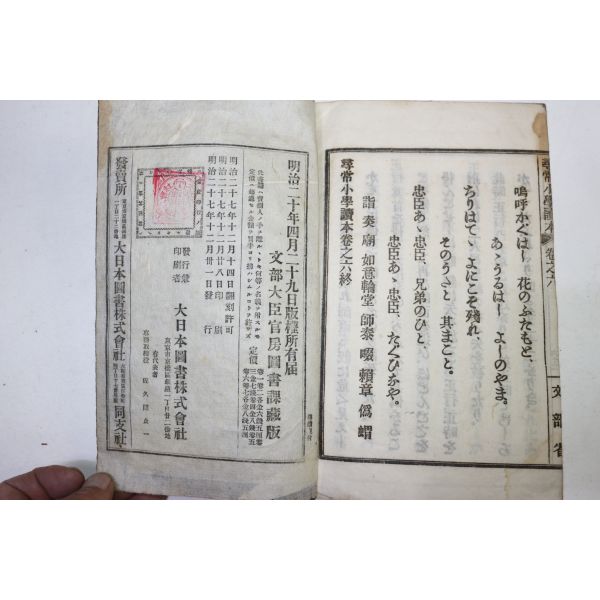 嗚呼かぐはし、花のふたもと、
あゝうるはし、よしのやま。
ちりはてゝ、よにこそ殘れ、
そのうたと、其まこと。
忠臣あゝ忠臣、兄弟のひと、
忠臣あゝ忠臣、たぐひなや。
詣 奏 廟 如意輪堂 師泰 啜 賴章 僞 帽
尋常小學讀本卷之六終
尋常小學讀本 卷之六
文部省
明治二十年四月二十九日版權所有届
文部大臣官房圖書課藏版
定價
明治二十七年十二月十四日翻刻許可
明治二十七年十二月廿八日印刷
明治二十七年十二月廿一日發行
發行兼
印刷者
大日本圖書株式會社
東京市京橋區銀座一丁目廿二番地
右代表者
佐久間貞一
發賣所
大日本圖書株式會社
同支社